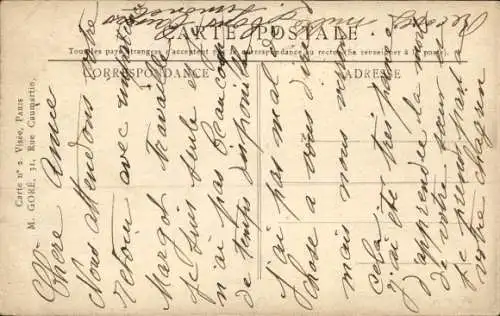 CARTE POSTALE
Tous les pays étrangers n'acceptent pas la correspondance au recto (Se renseigner à la poste).
CORRESPONDANCE
ADRESSE
Carte n° 2. Visée, Paris
M. GORÉ, 31, Rue Caumartin
Chère Amie
Nous attendons votre
retour avec
Margot travaille
je suis seule et
n'ai pas beaucoup
de temps disponible
J'ai pas mal
chose à vous dire
mais nous
cela
J'ai été très peinée
d'apprendre la mort
de votre sœur
je prends part
votre chagrin